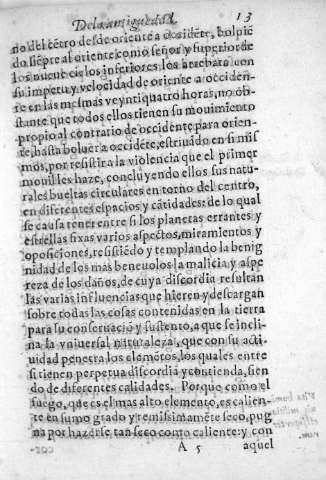 De la antiguedad 13
no del cẽtro desde oriente a occidẽte, boluiẽ
do siẽpre al oriente, como señor y superior de
los nueue cielos inferiores los arrebata con
su impetu y velocidad de oriente a occiden-
te en las mesmas veyntiquatro horas, no ob-
stante que todos ellos tienen su mouimiento
propio al contrario de occidẽte para orien-
te, hasta boluer a occidẽte, estriuãdo en si mis
mos, por resistir a la violencia que el primer
mouil les haze, concluyendo ellos sus natu-
rales bueltas circulares en torno del centro,
en diferentes espacios y cãtidades: de lo qual
se causa tener entre si los planetas errantes y
estrellas fixas varios aspectos, miramientos y
oposiciones, resistiẽdo y templando la benig
nidad de los mas beneuolos la malicia y aspe
reza de los daños, de cuya discordia resultan
las varias influencias que hieren y descargan
sobre todas las cosas contenidas en la tierra
para su conseruacio y sustento, a que se incli-
na la vniuersal naturaleza, que con su acti-
uidad penetra los elemẽtos, los quales entre
si tienen perpetua discordia y cõtienda, sien
do de diferentes calidades. Porque como el
fuego, que es el mas alto elemento, es calien-
te en sumo grado y remissimamẽte seco, pug
na por hazerse tan seco como caliente: y con
A 5 aquel